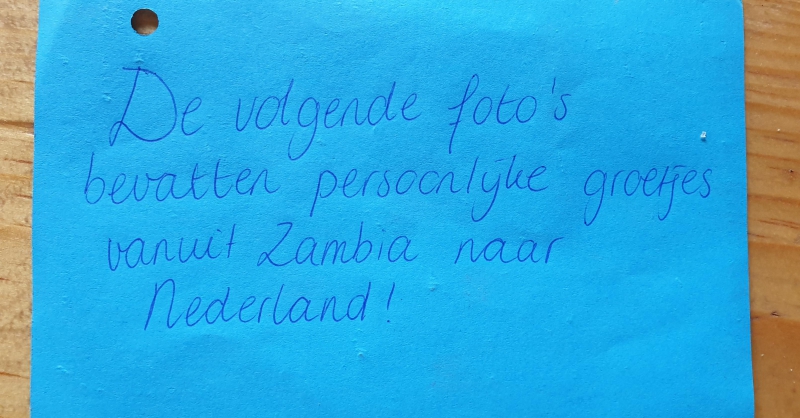 De volgende foto's
bevatten persoonlijke groetjes
vanuit Zambia naar
Nederland!